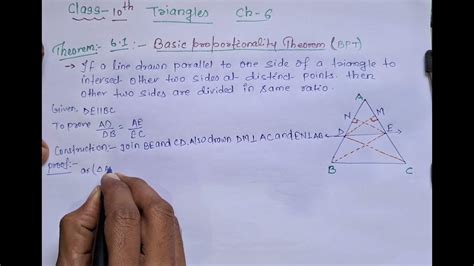 Class - 10th Triangles Ch-6
Theorem:- 6.1 :- Basic proportionality Theorem (BPT)
→ If a line drawn parallel to one side of a triangle to
intersed other two sides at distinct points. then
other two sides are divided in same ratio.
Given DE||BC
To prove AD/DB = AE/EC
Construction:- Join BE and CD. Also drawn DM⊥AC and EN⊥AB
proof:- ar(△
A
N M
D E
B C